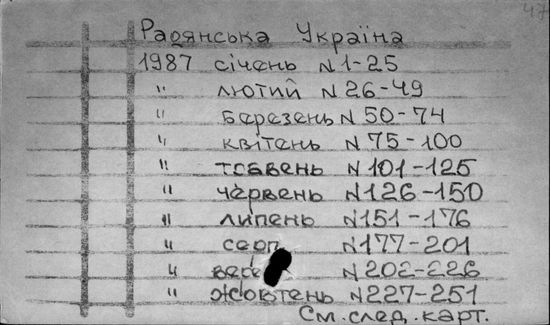 47
Радянська Україна
1987 січень N 1-25
" лютий N 26-49
" березень N 50-74
" квітень N 75-100
" травень N 101-125
" червень N 126-150
" липень N 151-176
" серп N 177-201
" вере N 202-226
" жовтень N 227-251
См. след. карт.